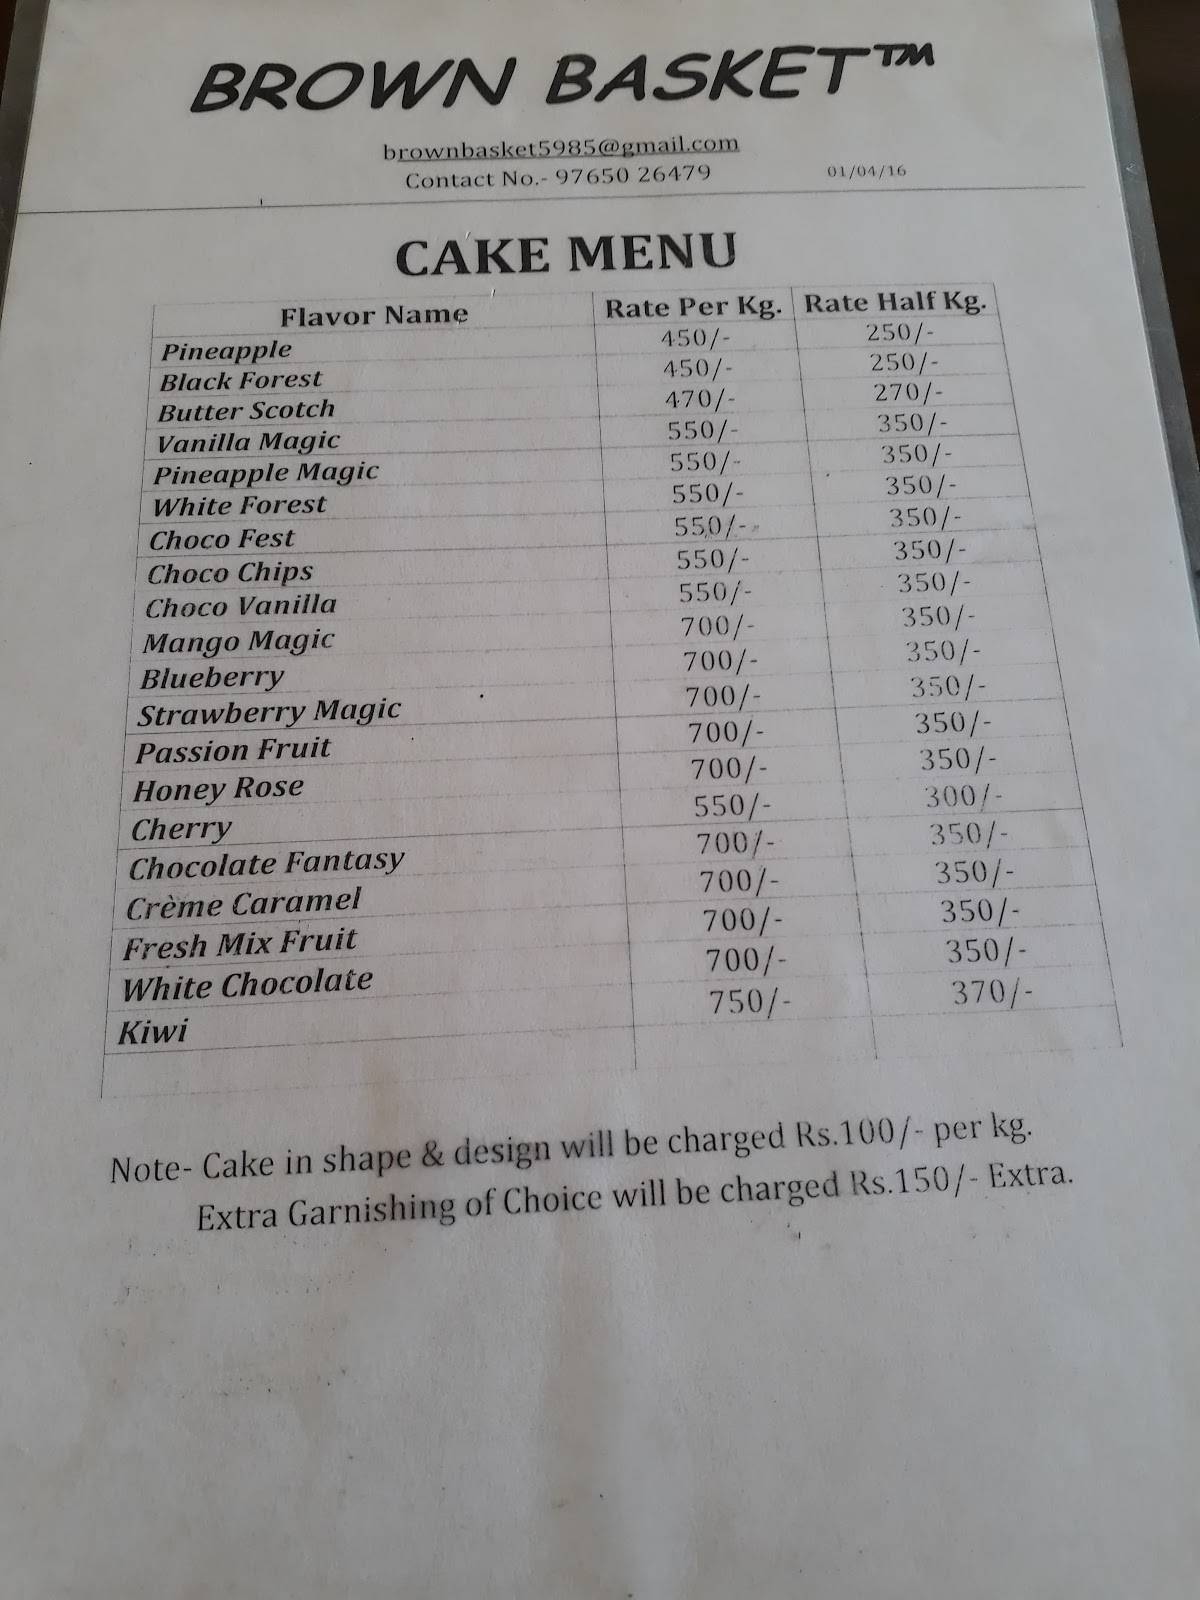 BROWN BASKET™
brownbasket5985@gmail.com
Contact No.- 97650 26479 01/04/16
CAKE MENU
Flavor Name Rate Per Kg. Rate Half Kg.
Pineapple 450/- 250/-
Black Forest 450/- 250/-
Butter Scotch 470/- 270/-
Vanilla Magic 550/- 350/-
Pineapple Magic 550/- 350/-
White Forest 550/- 350/-
Choco Fest 550/- 350/-
Choco Chips 550/- 350/-
Choco Vanilla 550/- 350/-
Mango Magic 700/- 350/-
Blueberry 700/- 350/-
Strawberry Magic 700/- 350/-
Passion Fruit 700/- 350/-
Honey Rose 700/- 350/-
Cherry 550/- 300/-
Chocolate Fantasy 700/- 350/-
Crème Caramel 700/- 350/-
Fresh Mix Fruit 700/- 350/-
White Chocolate 700/- 350/-
Kiwi 750/- 370/-
Note- Cake in shape & design will be charged Rs.100/- per kg.
Extra Garnishing of Choice will be charged Rs.150/- Extra.